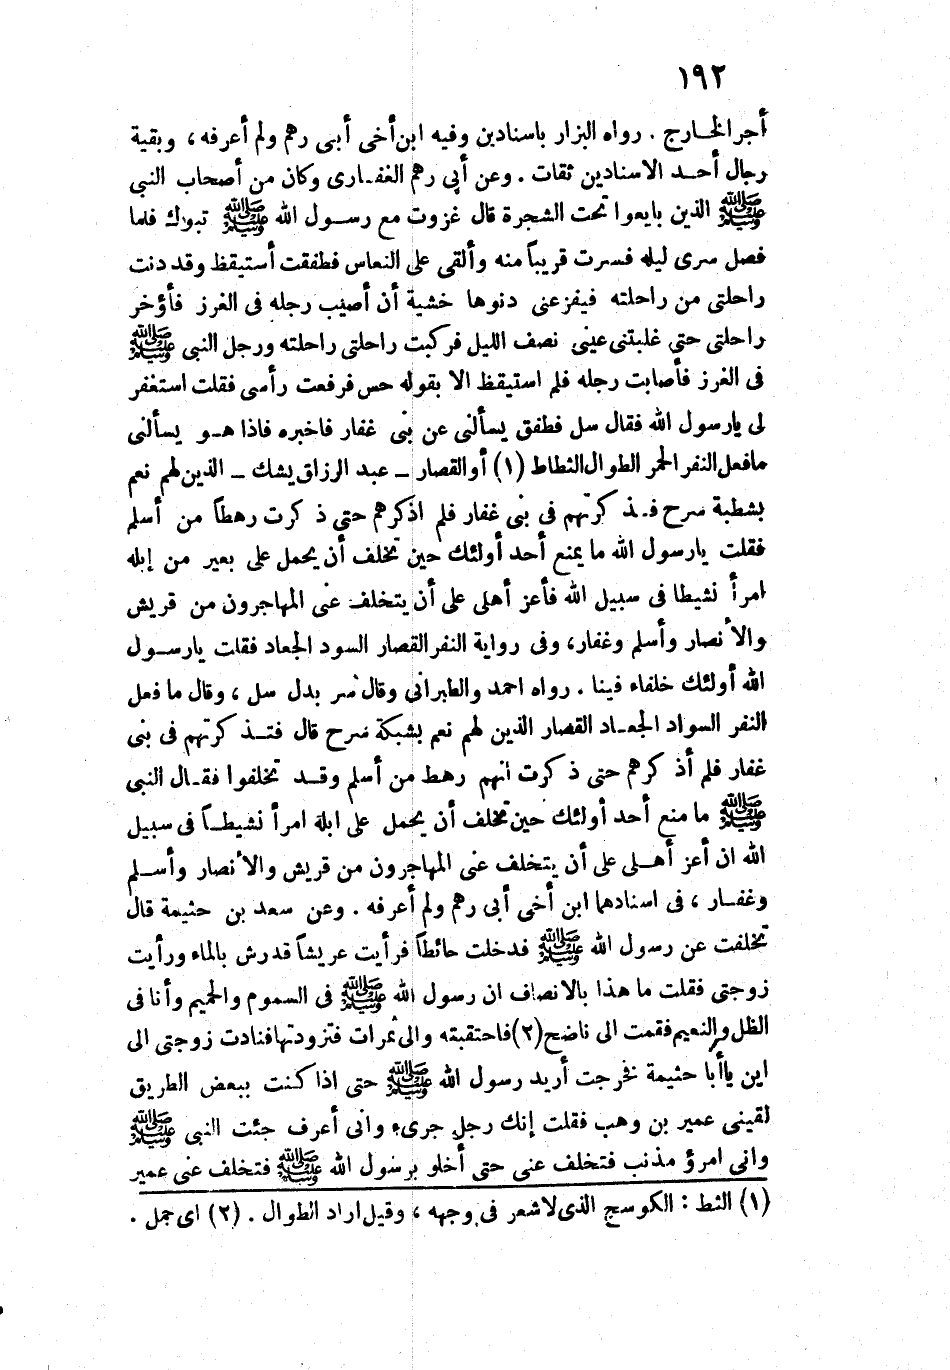 ١٩٢
أجر الخارج . رواه البزار باسنادين وفيه ابن أخى أبى رهم ولم أعرفه ، وبقية
رجال أحد الاسنادين ثقات . وعن أبى رهم الغفارى وكان من أصحاب النبى
ﷺ الذين بايعوا تحت الشجرة قال غزوت مع رسول الله ﷺ تبوك فلما
فصل سرى ليله فسرت قريباً منه وألقى على النعاس فطفقت أستيقظ وقد دنت
راحلتى من راحلته فيفزعنى دنوها خشية أن أصيب رجله فى الغرز فأؤخر
راحلتى حتى غلبتنى عينى نصف الليل فركبت راحلتى راحلته ورجل النبى ﷺ
فى الغرز فأصابت رجله فلم استيقظ الا بقوله حس فرفعت رأسى فقلت استغفر
لى يارسول الله فقال سل فطفق يسألنى عن بنى غفار فاخبره فاذا هو يسألنى
مافعل النفر الحمر الطوال الثطاط (١) أو القصار ــ عبد الرزاق يشك ــ الذين لهم نعم
بشطبة سرح فذكرتهم فى بنى غفار فلم اذكرهم حتى ذكرت رهطاً من أسلم
فقلت يارسول الله ما يمنع أحد أولئك حين تخلف أن يحمل على بعير من إبله
امرأ نشيطا فى سبيل الله فأعز أهلى على أن يتخلف عنى المهاجرون من قريش
والأنصار وأسلم وغفار، وفى رواية النفر القصار السود الجعاد فقلت يارسول
الله أولئك خلفاء فينا . رواه احمد والطبرانى وقال سر بدل سل ، وقال ما فعل
النفر السواد الجعاد القصار الذين لهم نعم بشبكة سرح قال فتذكرتهم فى بنى
غفار فلم أذكرهم حتى ذكرت انهم رهط من أسلم وقد تخلفوا فقال النبى
ﷺ ما منع أحد أولئك حين تخلف أن يحمل على ابلة امرأ نشيطاً فى سبيل
الله ان أعز أهلى على أن يتخلف عنى المهاجرون من قريش والأنصار وأسلم
وغفار ، فى اسنادهما ابن أخى أبى رهم ولم أعرفه . وعن سعد بن حثيمة قال
تخلفت عن رسول الله ﷺ فدخلت حائطاً فرأيت عريشاً قد رش بالماء ورأيت
زوجتى فقلت ما هذا بالانصاف ان رسول الله ﷺ فى السموم والحميم وأنا فى
الظل والنعيم فقمت الى ناضح (٢) فاحتقبته والى ثمرات فتزودتها فنادت زوجتى الى
اين ياأبا حثيمة فخرجت أريد رسول الله ﷺ حتى اذا كنت ببعض الطريق
لقينى عمير بن وهب فقلت إنك رجل جرىء وانى أعرف جئت النبى ﷺ
وانى امرؤ مذنب فتخلف عنى حتى أخلو برسول الله ﷺ فتخلف عنى عمير
(١) الثط : الكوسج الذى لاشعر فى وجهه ، وقيل اراد الطوال . (٢) اى جمل .